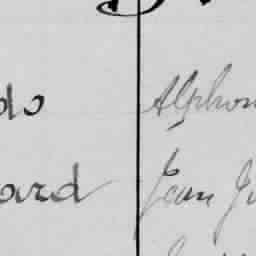 do Alphon
ard Jean Ju